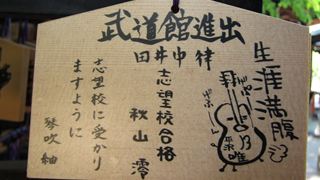 武道館進出
田井中 律
生涯満腹
平沢唯
志望校合格
秋山 澪
志望校に受かり
ますように
琴吹 紬